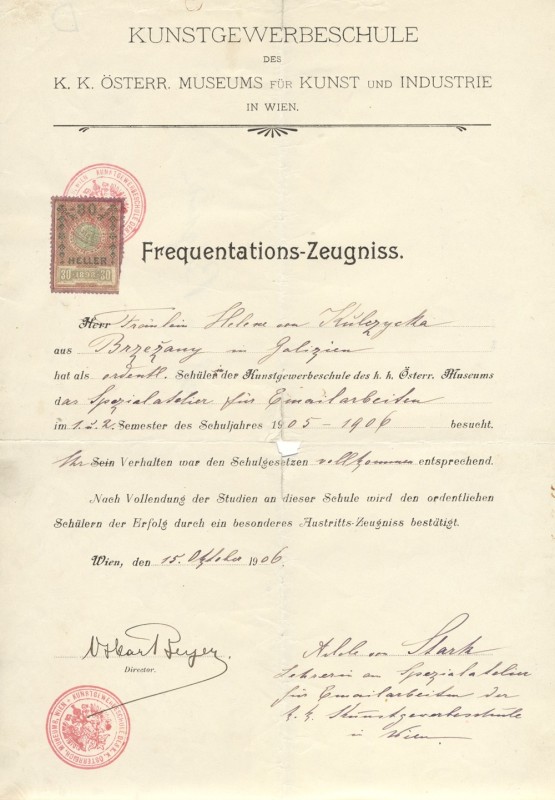 KUNSTGEWERBESCHULE
DES
K. K. ÖSTERR. MUSEUMS FÜR KUNST UND INDUSTRIE
IN WIEN.
30
HELLER
30 1898 30
Frequentations-Zeugniss.
Herr Fräulein Helene von Kulczycka
aus Brzeżany in Galizien
hat als ordentl. Schülerin der Kunstgewerbeschule des k. k. Österr. Museums
das Spezialatelier für Emailarbeiten
im 1. u. 2. Semester des Schuljahres 1905 - 1906 besucht.
Ihr Sein Verhalten war den Schulgesetzen vollkommen entsprechend.
Nach Vollendung der Studien an dieser Schule wird den ordentlichen
Schülern der Erfolg durch ein besonderes Austritts-Zeugniss bestätigt.
Wien, den 15. Oktober 1906.
Oskar Beyer
Director.
Adele von Stark
Lehrerin am Spezialatelier
für Emailarbeiten der
k. k. Kunstgewerbeschule
in Wien